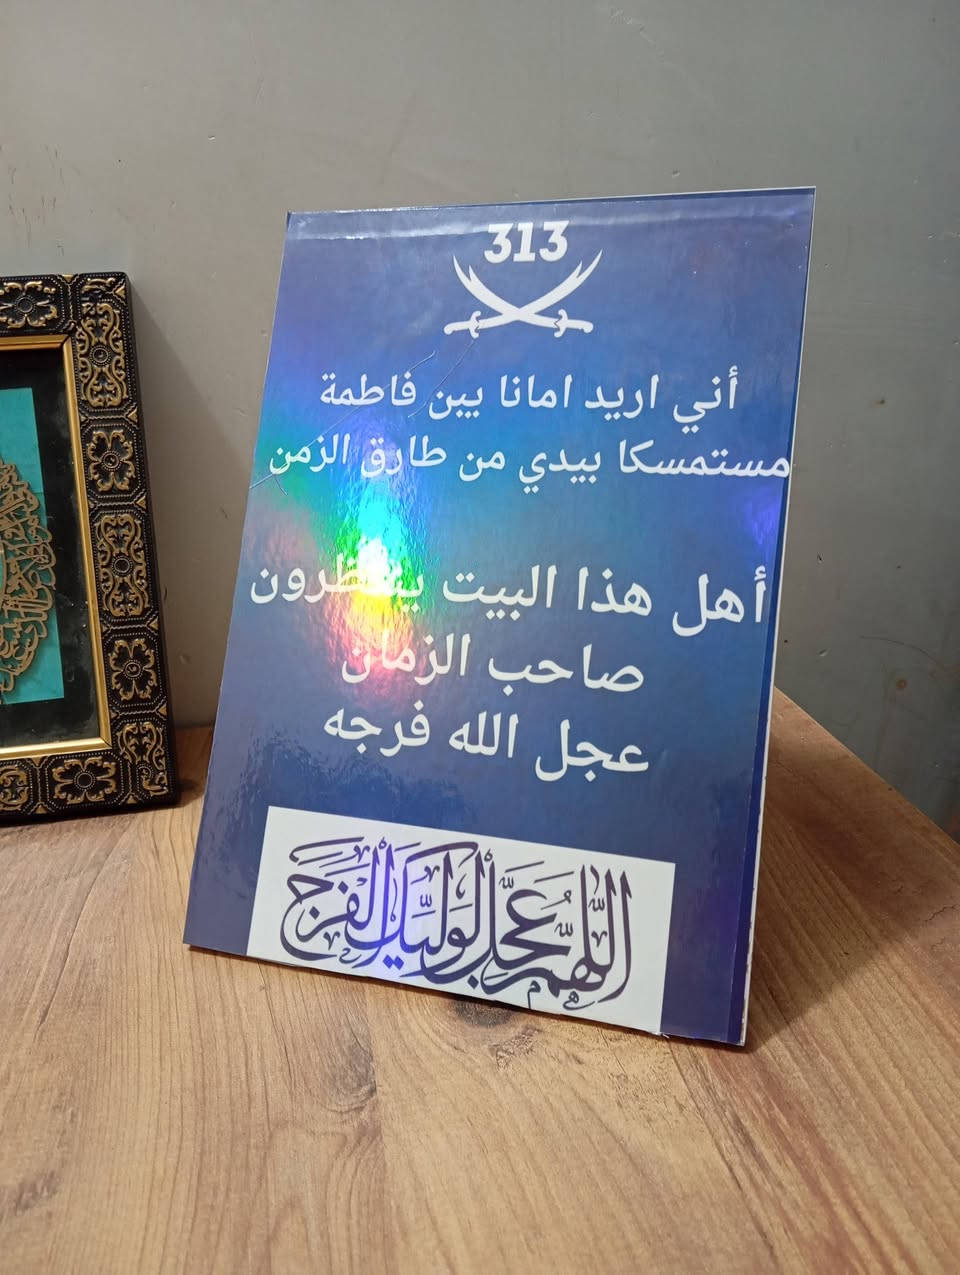 313
أني اريد امانا يبن فاطمة
مستمسكا بيدي من طارق الزمن
أهل هذا البيت ينتظرون
صاحب الزمان
عجل الله فرجه
اللهم عجل لوليك الفرج